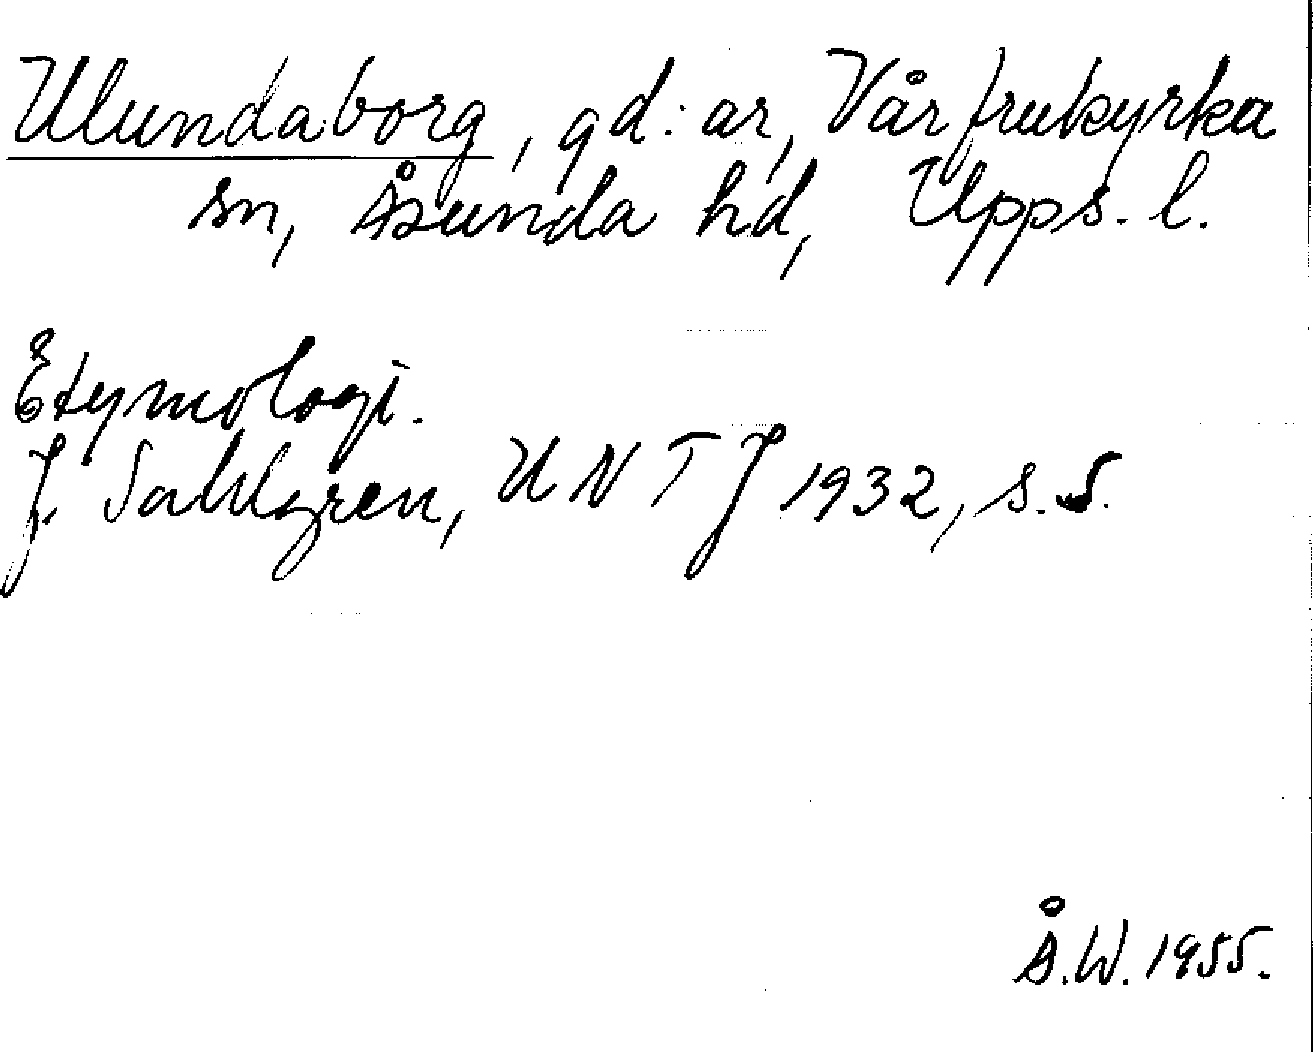 Ulundaborg, gd:ar, Vårfrukyrka
sn, Åsunda hd, Upps. l.
Etymologi.
J. Sahlgren, UNTJ 1932, s. 5.
Å.W. 1955.